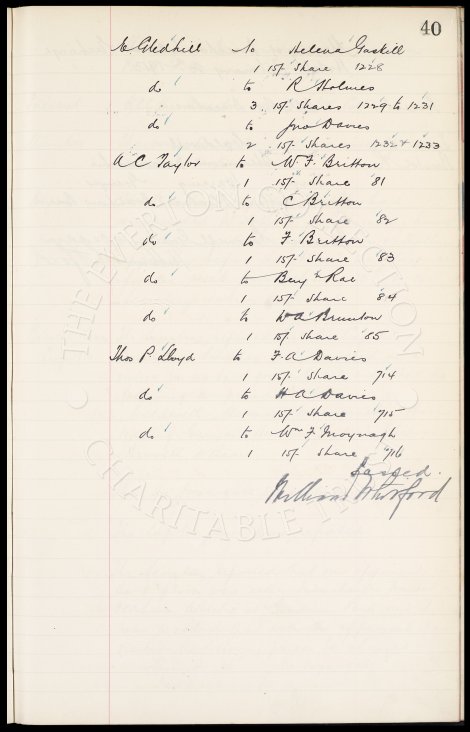 40
E Gledhill to Helena Gaskill
1 15/- Share 1228
do to R Holmes
3 15/- Shares 1229 to 1231
do to Jno Davies
2 15/- Shares 1232 & 1233
A C Taylor to W. F. Britton
1 15/- Share 81
do to C Britton
1 15/- Share 82
do to F. Britton
1 15/- Share 83
do to Benj n Rae
1 15/- Share 84
do to W A Brunton
1 15/- Share 85
Thos P Lloyd to F. A Davies
1 15/- Share 714
do to H A Davies
1 15/- Share 715
do to Wm F Moynagh
1 15/- Share 716
William
THE EVERTON COLLECTION
CHARITABLE